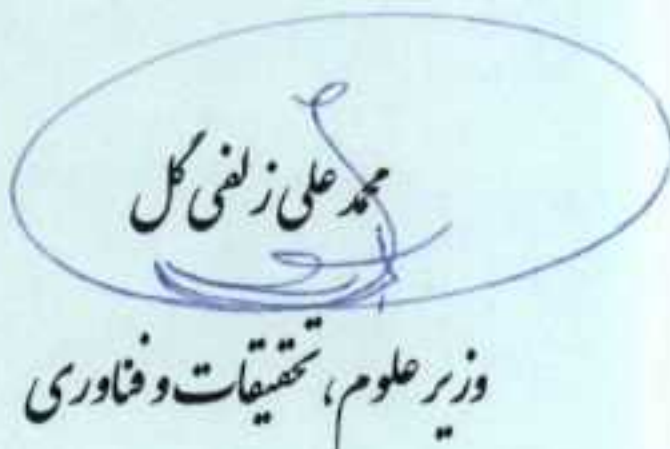 محمد علی زلفی گل
وزیر علوم، تحقیقات و فناوری